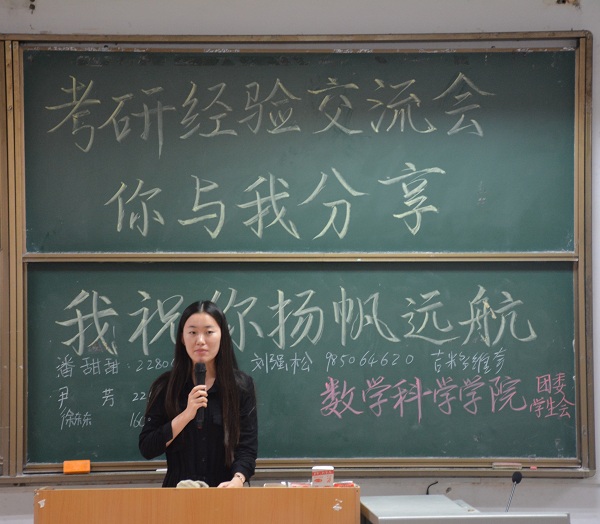 考研经验交流会
你与我分享
我祝你扬帆远航
潘甜甜:2280 刘强松 985064620
尹 芳 22
徐东东 160
数学科学学院 团委
学生会